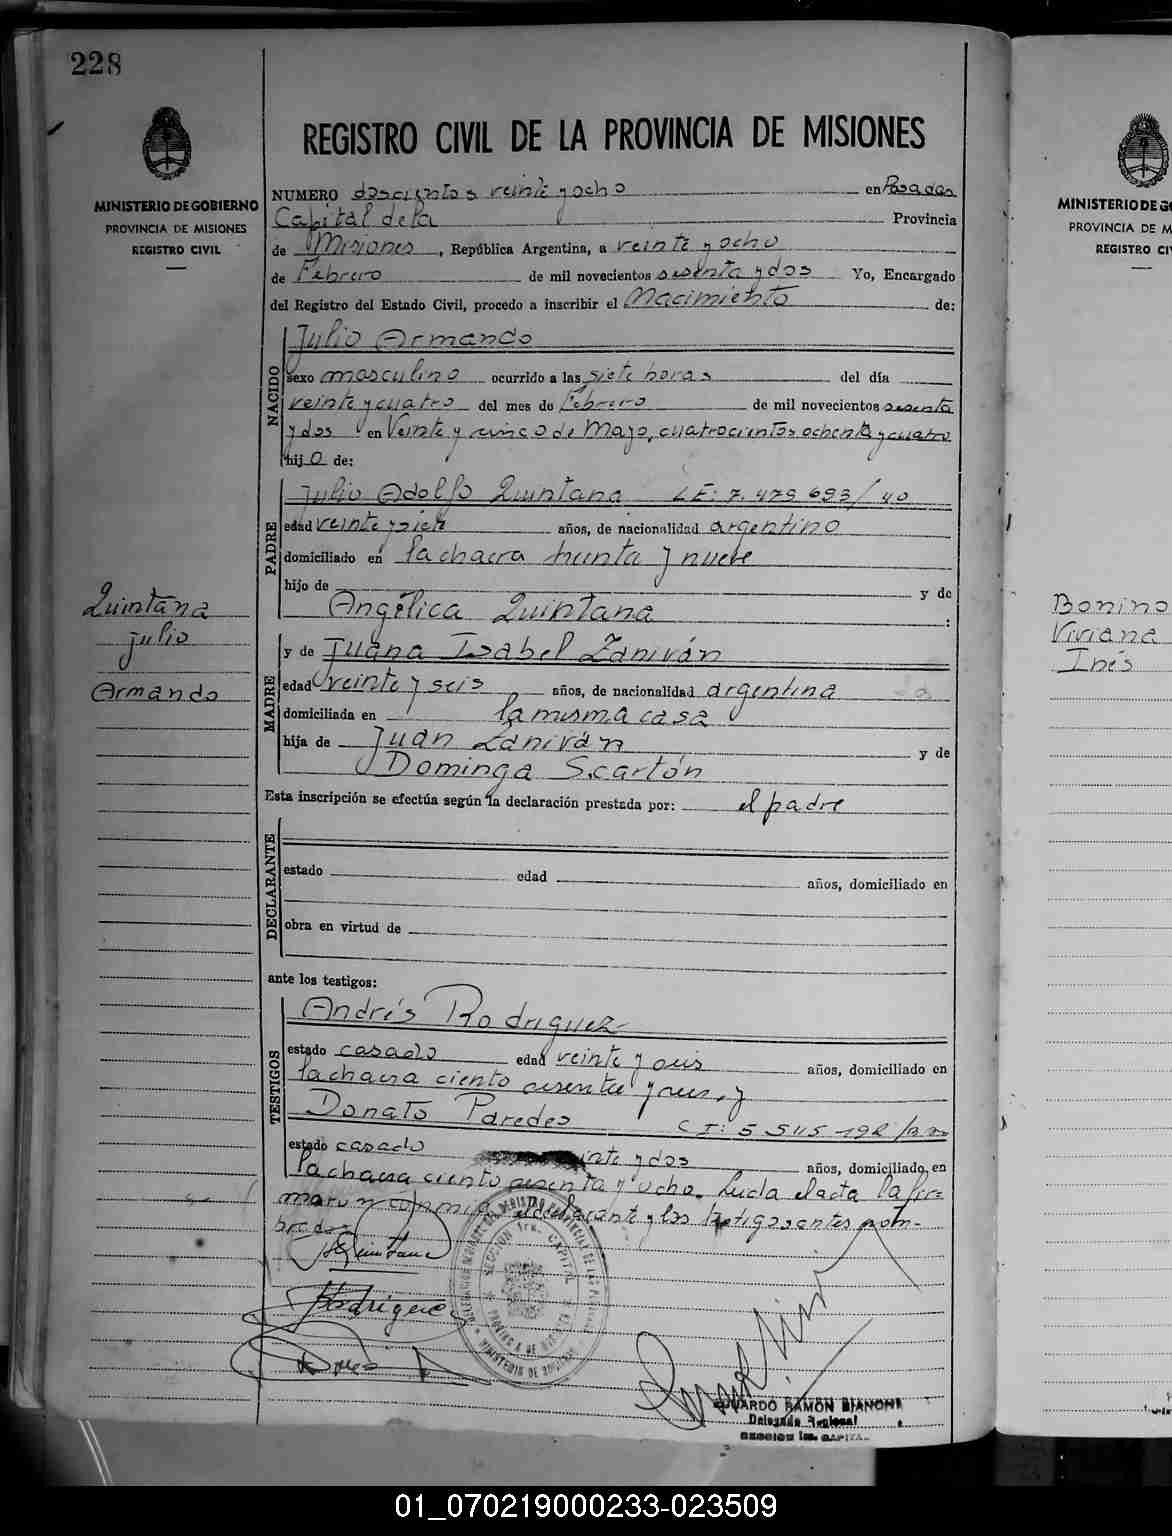 228
REGISTRO CIVIL DE LA PROVINCIA DE MISIONES
MINISTERIO DE GOBIERNO
PROVINCIA DE MISIONES
REGISTRO CIVIL
NUMERO doscientos veinte y ocho en Posadas
Capital de la Provincia
de Misiones, República Argentina, a veinte y ocho
de Febrero de mil novecientos sesenta y dos Yo, Encargado
del Registro del Estado Civil, procedo a inscribir el Nacimiento de:
NACIDO
Julio Armando
sexo masculino ocurrido a las siete horas del día
veinte y cuatro del mes de Febrero de mil novecientos sesenta
y dos en Veinte y cinco de Mayo, cuatrocientos ochenta y cuatro
hijo de:
PADRE
Julio Adolfo Quintana LE: 7.479.693/40
edad veinte y siete años, de nacionalidad argentino
domiciliado en la chacra treinta y nueve
hijo de y de
Angélica Quintana :
MADRE
y de Juana Isabel Zaniván
edad veinte y seis años, de nacionalidad argentina
domiciliada en la misma casa
hija de Juan Zaniván y de
Dominga Scartón
Quintana
Julio
Armando
Esta inscripción se efectúa según la declaración prestada por: el padre
DECLARANTE
estado edad años, domiciliado en
obra en virtud de
ante los testigos:
TESTIGOS
Andrés Rodriguez
estado casado edad veinte y seis años, domiciliado en
la chacra ciento sesenta y seis, y
Donato Paredes CI:
estado casado y dos años, domiciliado en
la chacra ciento sesenta y ocho. Leida el acta la fir=
maron conmigo el declarante y los testigos antes nom-
brados
Quintana
Rodriguez
SECCION 1ra. CAPITAL
PROVINCIA DE MISIONES
MINISTERIO DE GOBIERNO
EDUARDO RAMON BIANCHI
Delegado Regional
SECCION 1ra. CAPITAL
MINISTERIO DE GO
PROVINCIA DE M
REGISTRO CIV
Bonino
Viviana
Inés
01_070219000233-023509